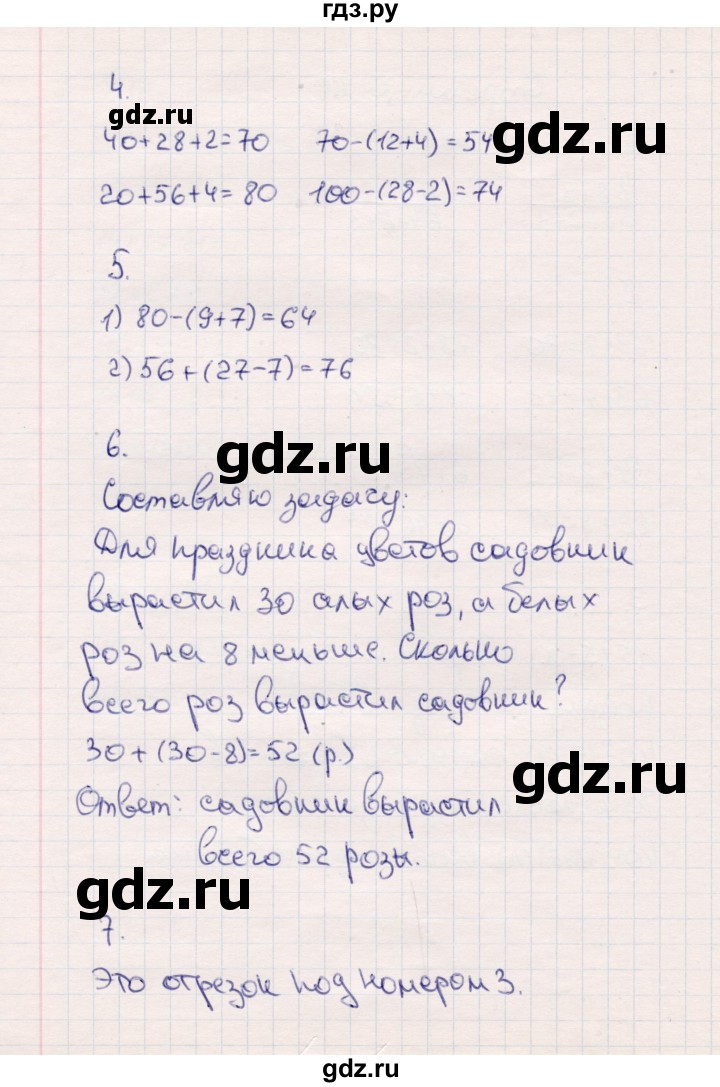 гдз.ру
4.
gdz.ru
40+28+2=70 70-(12+4)=54
gdz.ru
20+56+4=80 100-(28-2)=74
5.
1) 80-(9+7)=64
2) 56+(27-7)=76
6.
gdz.ru
Составляю задачу:
Для праздника цветов садовник
вырастил 30 алых роз, а белых
роз на 8 меньше. Сколько
всего роз вырастил садовник?
30+(30-8)=52 (р.)
gdz.ru
Ответ: садовник вырастил
всего 52 розы.
gdz.ru
7.
Это отрезок под номером 3.
gdz.ru